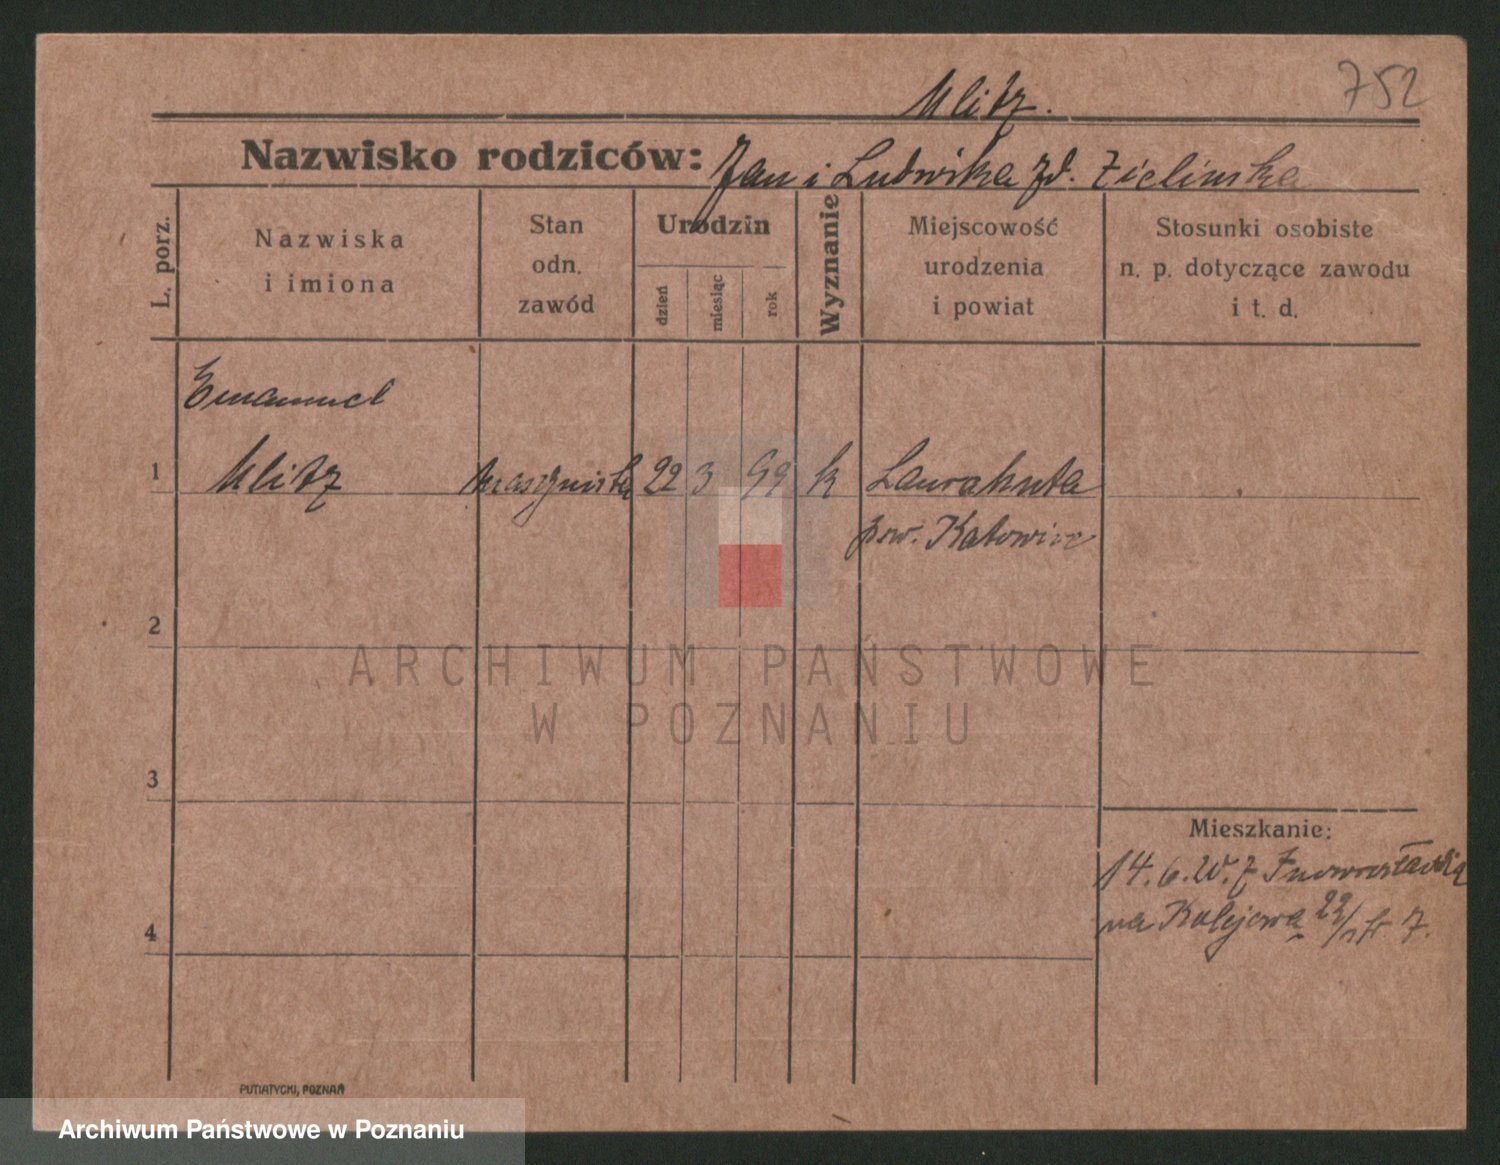 752
Mlitz.
Nazwisko rodziców: Jan i Ludwika zd. Zielinska
L. porz.
Nazwiska
i imiona
Stan
odn.
zawód
Urodzin
dzień
miesiąc
rok
Wyznanie
Miejscowość
urodzenia
i powiat
Stosunki osobiste
n. p. dotyczące zawodu
i t. d.
Emanuel
1 Mlitz maszynista 22 3 99 k Laurahuta
pow. Katowice
2
ARCHIWUM PAŃSTWOWE
W POZNANIU
3
Mieszkanie:
14. 6. z Inowrocławia
na Kolejowa 22/
4
PUTIATYCKI, POZNAŃ
Archiwum Państwowe w Poznaniu